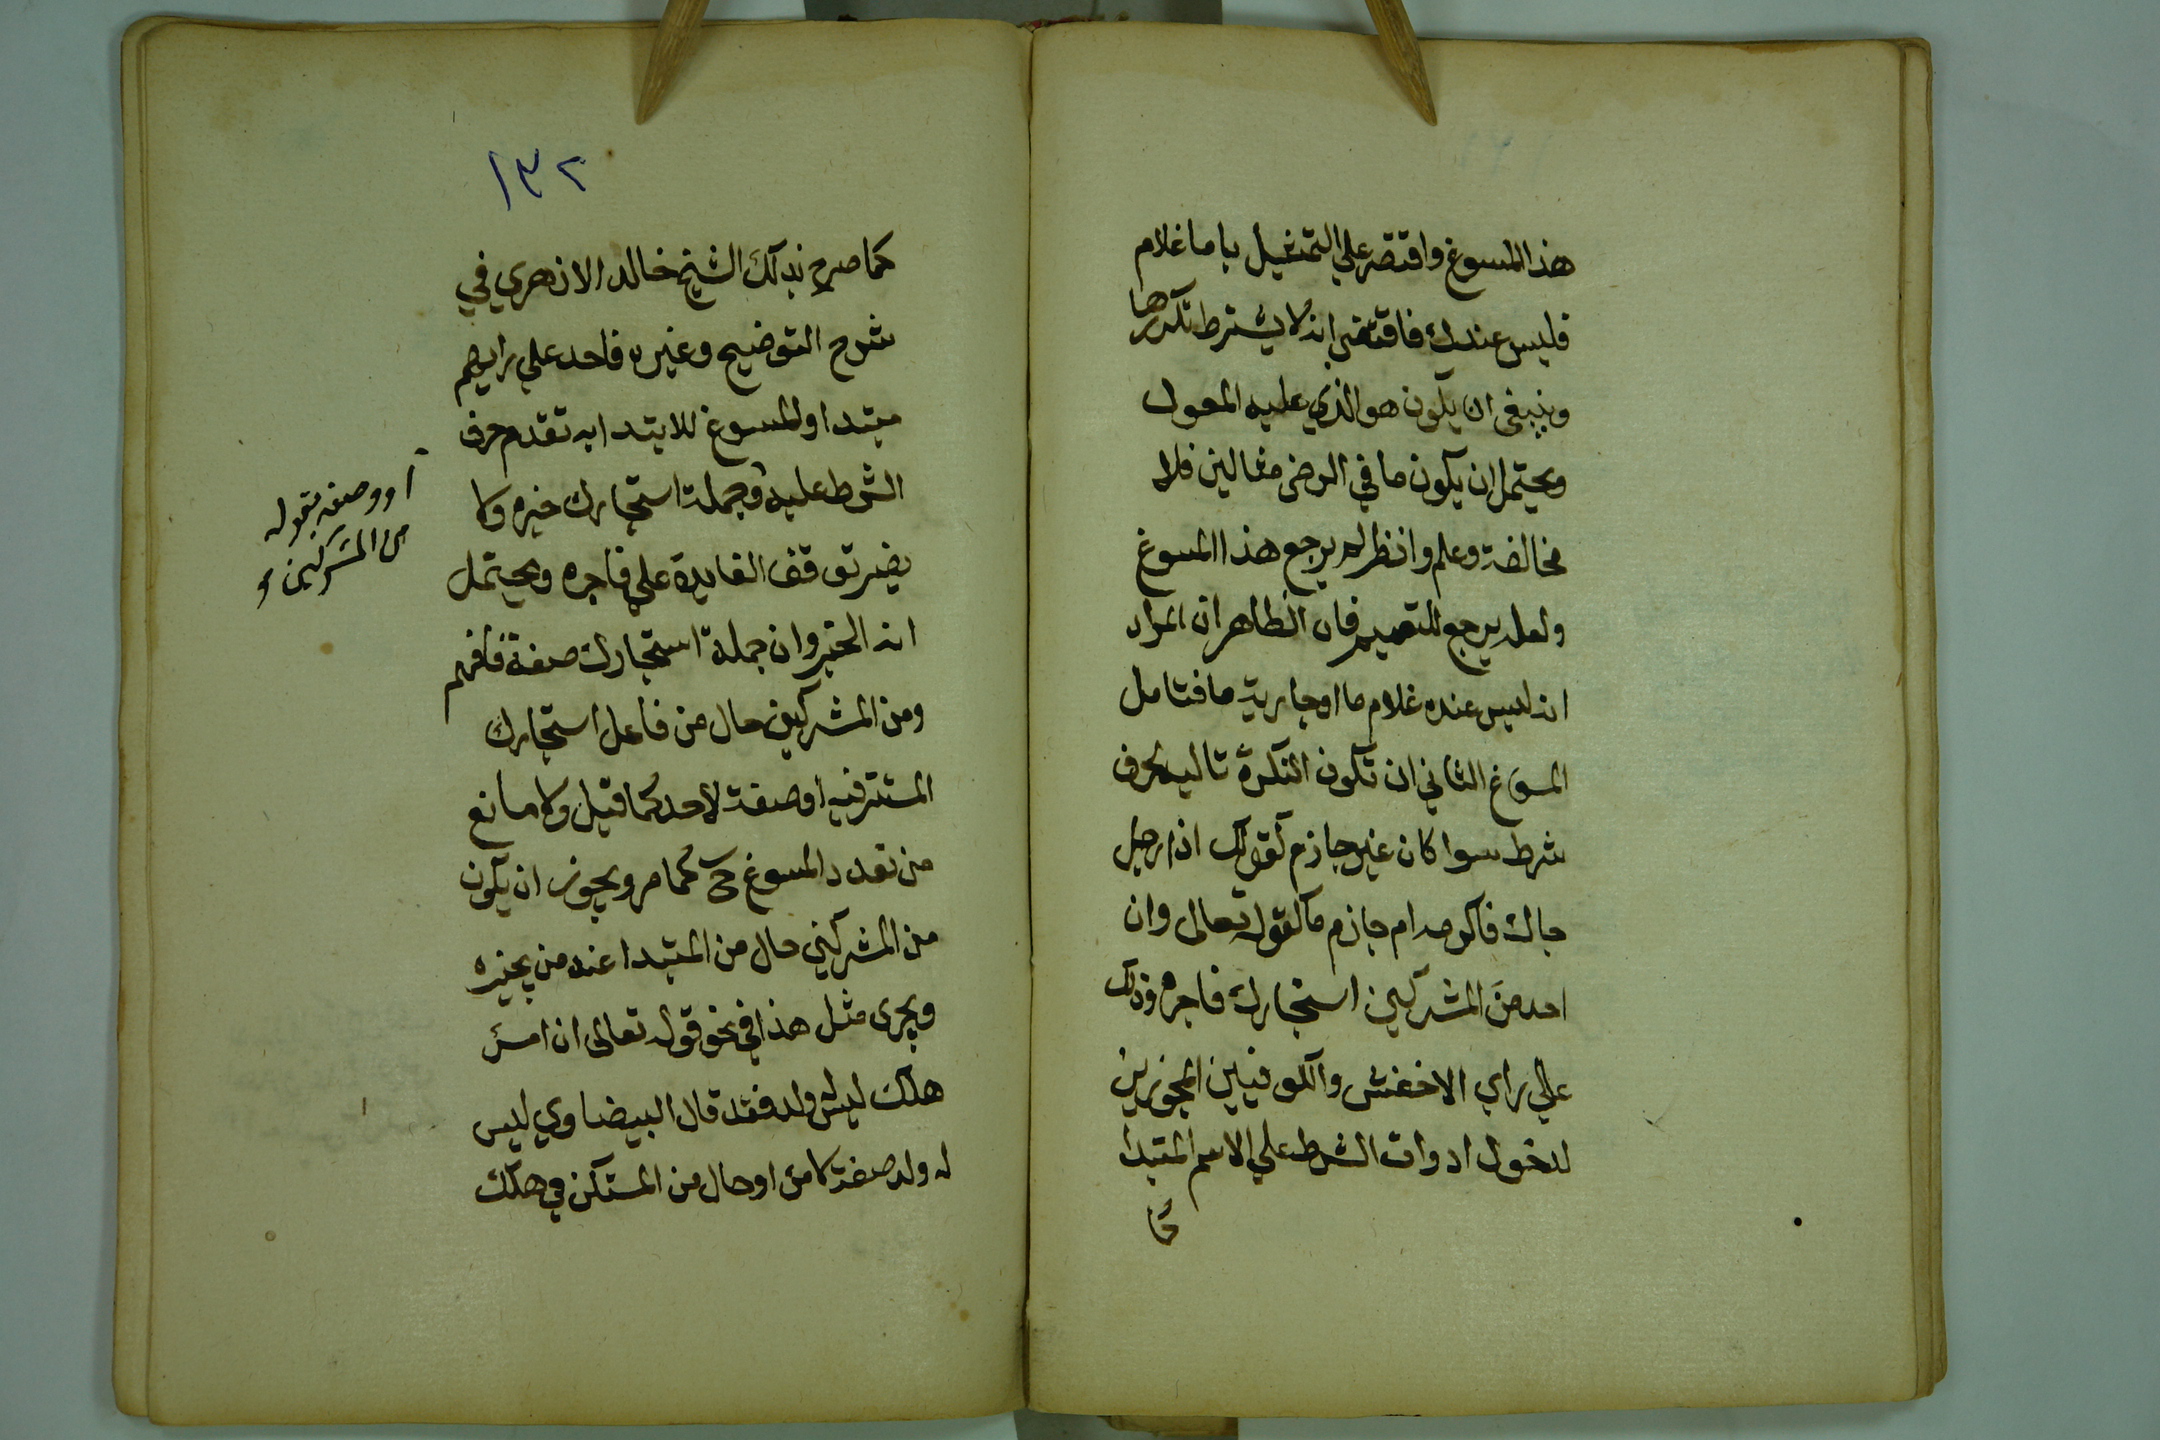 هذا المسوغ واقتصر علي التمثيل باما غلام
فليس عندك فاقتضي انه لا يشترط تكررها
وينبغي ان يكون هو الذي عليه المعول
ويحتمل ان يكون ما في الرضى مثالين فلا
مخالفة وعلم وانظر لم يرجع هذا المسوغ
ولعله يرجع للتعميم فان الظاهر ان المراد
انه ليس عنده غلام ما او جارية ما فتامل
المسوغ الثاني ان تكون النكرة تالية لحرف
شرط سوا كان غير جازم كقولك اذا رجل
جاك فاكرمه ام جازم كقوله تعالى وان
احد من المشركين استجارك فاجره وذلك
علي راي الاخفش والكوفيين المجوزين
لدخول ادوات الشرط علي الاسم المبتدا
كما
١٣٢
كما صرح بذلك الشيخ خالد الازهري في
شرح التوضيح وغيره فاحد علي رايهم
مبتدا والمسوغ للابتدا به تقدم حرف
الشرط عليه وجملة استجارك خبره ولا
يضر توقف الفايدة علي فاجره ويحتمل
انه الخبر وان جملة استجارك صفة فافهم
ومن المشركين حال من فاعل استجارك
المستتر فيه او صفة لاحد كما قيل ولا مانع
من تعدد المسوغ ح كما مر ويجوز ان يكون
من المشركين حال من المبتدا عند من يجيزه
ويجرى مثل هذا في نحو قوله تعالى ان امرؤ
هلك ليس له ولد فقد قال البيضاوي ليس
له ولد صفة لامرئ او حال من المستكن في هلك
او وصفه بقوله
من المشركين و